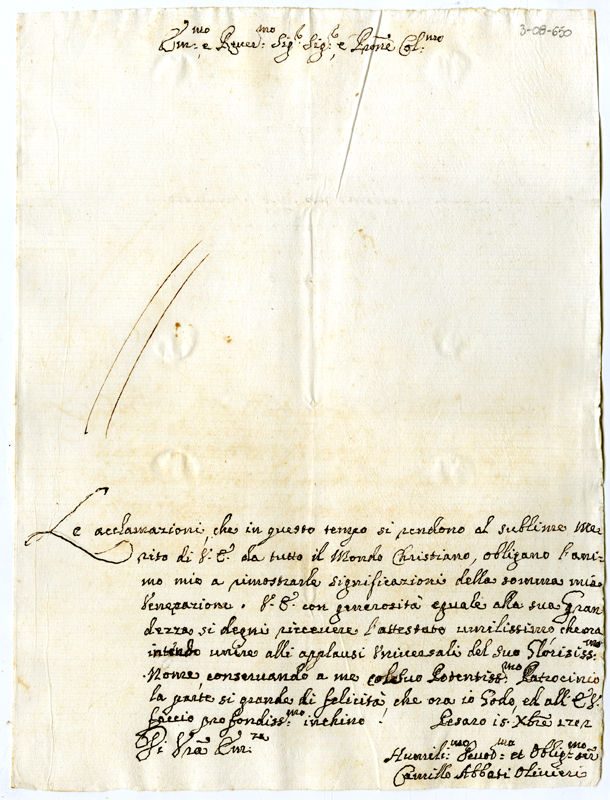 3-08-650
Em:mo e Rever:mo Sig:r Sig:r, e Prone Col:mo
Le acclamazioni, che in questo tempo si rendono al sublime me
rito di V. E. da tutto il Mondo Christiano, obligano l'ani
mo mio a rimostrarle significazioni della somma mia
Venerazione. V. E. con generosità eguale alla sua Gran
dezza si degni ricevere l'attestato umilissimo, che ora
intendo unire alli applausi Universali del suo Glorisiss:mo
Nome conservando a me col suo Potentiss:mo Patrocinio
la parte si grande di felicità, che ora io Godo, ed all' E. V.
faccio profondiss:mo inchino. Pesaro 15 Xbre
Di Vra Em:za
Humili:mo Devot:mo et Oblig:mo
Camillo Abbati Olivieri